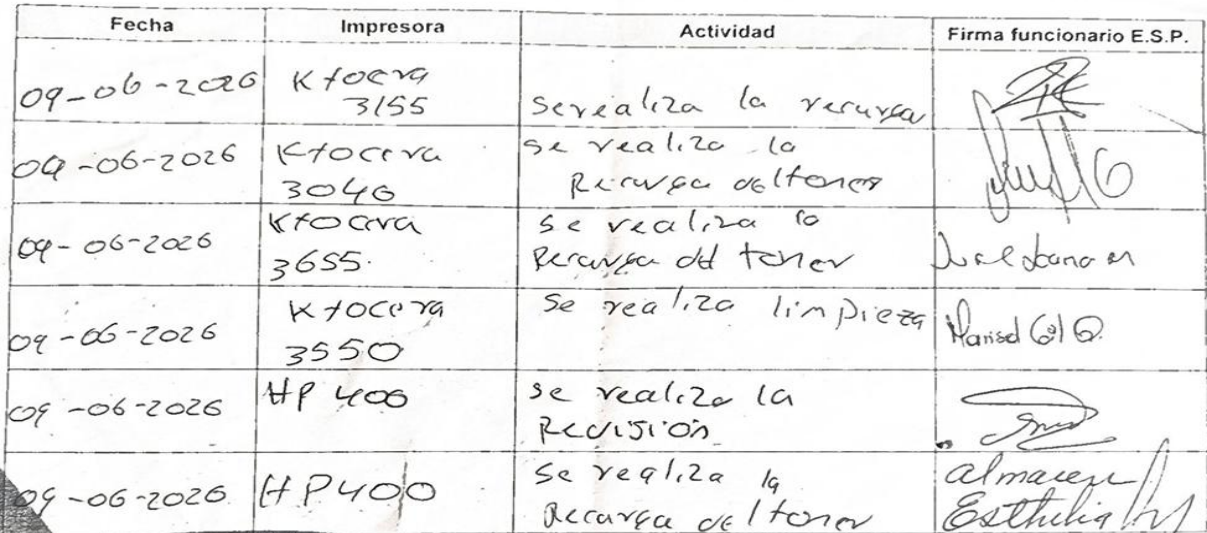 Fecha Impresora Actividad Firma funcionario E.S.P.
09-06-2026 Kyocera
3155 se realiza la recarga
09-06-2026 Kyocera se realiza la
3040 Recarga del toner
09-06-2026 Kyocera se realiza la
3655. Recarga del toner
09-06-2026 Kyocera Se realiza limpieza Marisol Gil G.
3550
09-06-2026 HP 400 se realiza la
Revisión
09-06-2026 HP400 Se realiza la almacen
Recarga del toner Esthelia